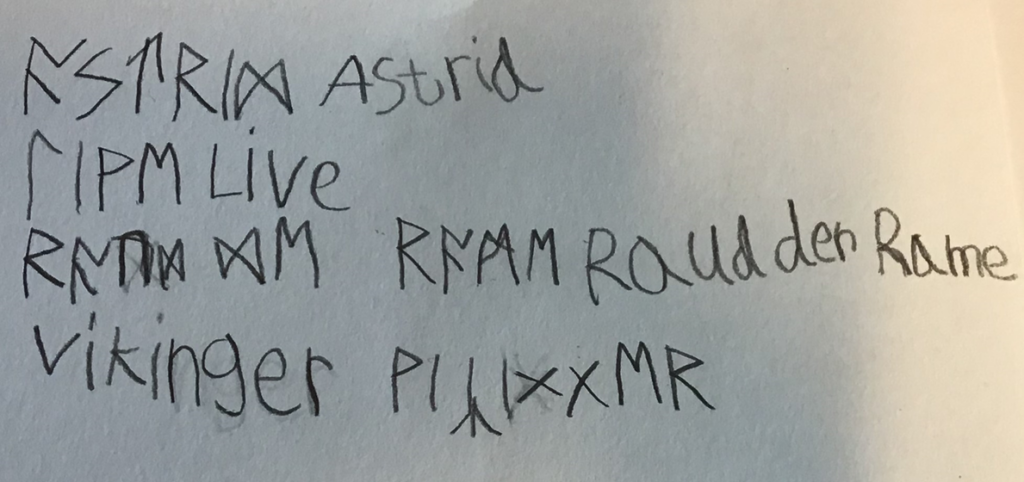 ᚨᛊᛏᚱᛁᛞ Astrid
ᛚᛁᚹᛖ Live
ᚱᚨᚢᛞ ᛞᛖ ᚱᚨᛗᛖ Raud den Rame
Vikinger ᚹᛁᛣᛁᚷᚷᛖᚱ